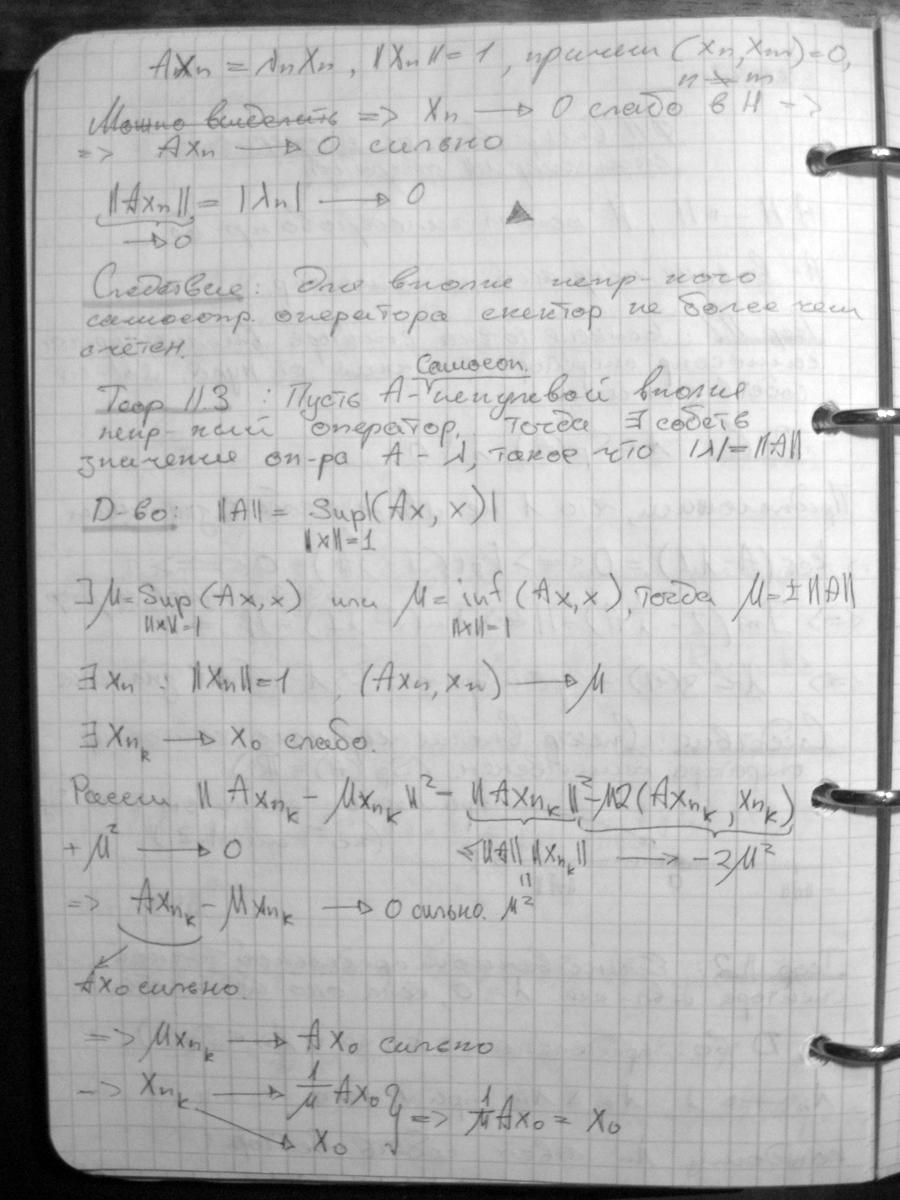 Axₙ = λₙxₙ, ||xₙ|| = 1, причем (xₙ, xₘ) = 0,
n ≠ m
Можно выделить => xₙ → 0 слабо в H ->
=> Axₙ → 0 сильно
||Axₙ|| = |λₙ| → 0
→ 0
▲
Следствие: Для вполне непр-ного
самосопр. оператора спектор не более чем
счётен.
Самосоп.
Теор 11.3 : Пусть A - ненулевой вполне
непр-ный оператор, тогда ∃ собств
значение оп-ра A - λ, такое что |λ| = ||A||
Д-во: ||A|| = Sup|(Ax, x)|
||x||=1
∃ μ = Sup (Ax, x) или μ = inf (Ax, x), тогда μ = ± ||A||
||x||=1 ||x||=1
∃ xₙ : ||xₙ|| = 1, (Axₙ, xₙ) → μ
∃ xₙₖ → x₀ слабо.
Рассм || Axₙₖ - μxₙₖ ||² = ||Axₙₖ||² - μ2(Axₙₖ, xₙₖ)
+ μ² → 0 ≤ ||A|| ||xₙₖ|| → -2μ²
=> Axₙₖ - μxₙₖ → 0 сильно. μ²
Ax₀ сильно.
=> μxₙₖ → Ax₀ сильно
-> xₙₖ → 1/μ Ax₀ } => 1/μ Ax₀ = x₀
→ x₀